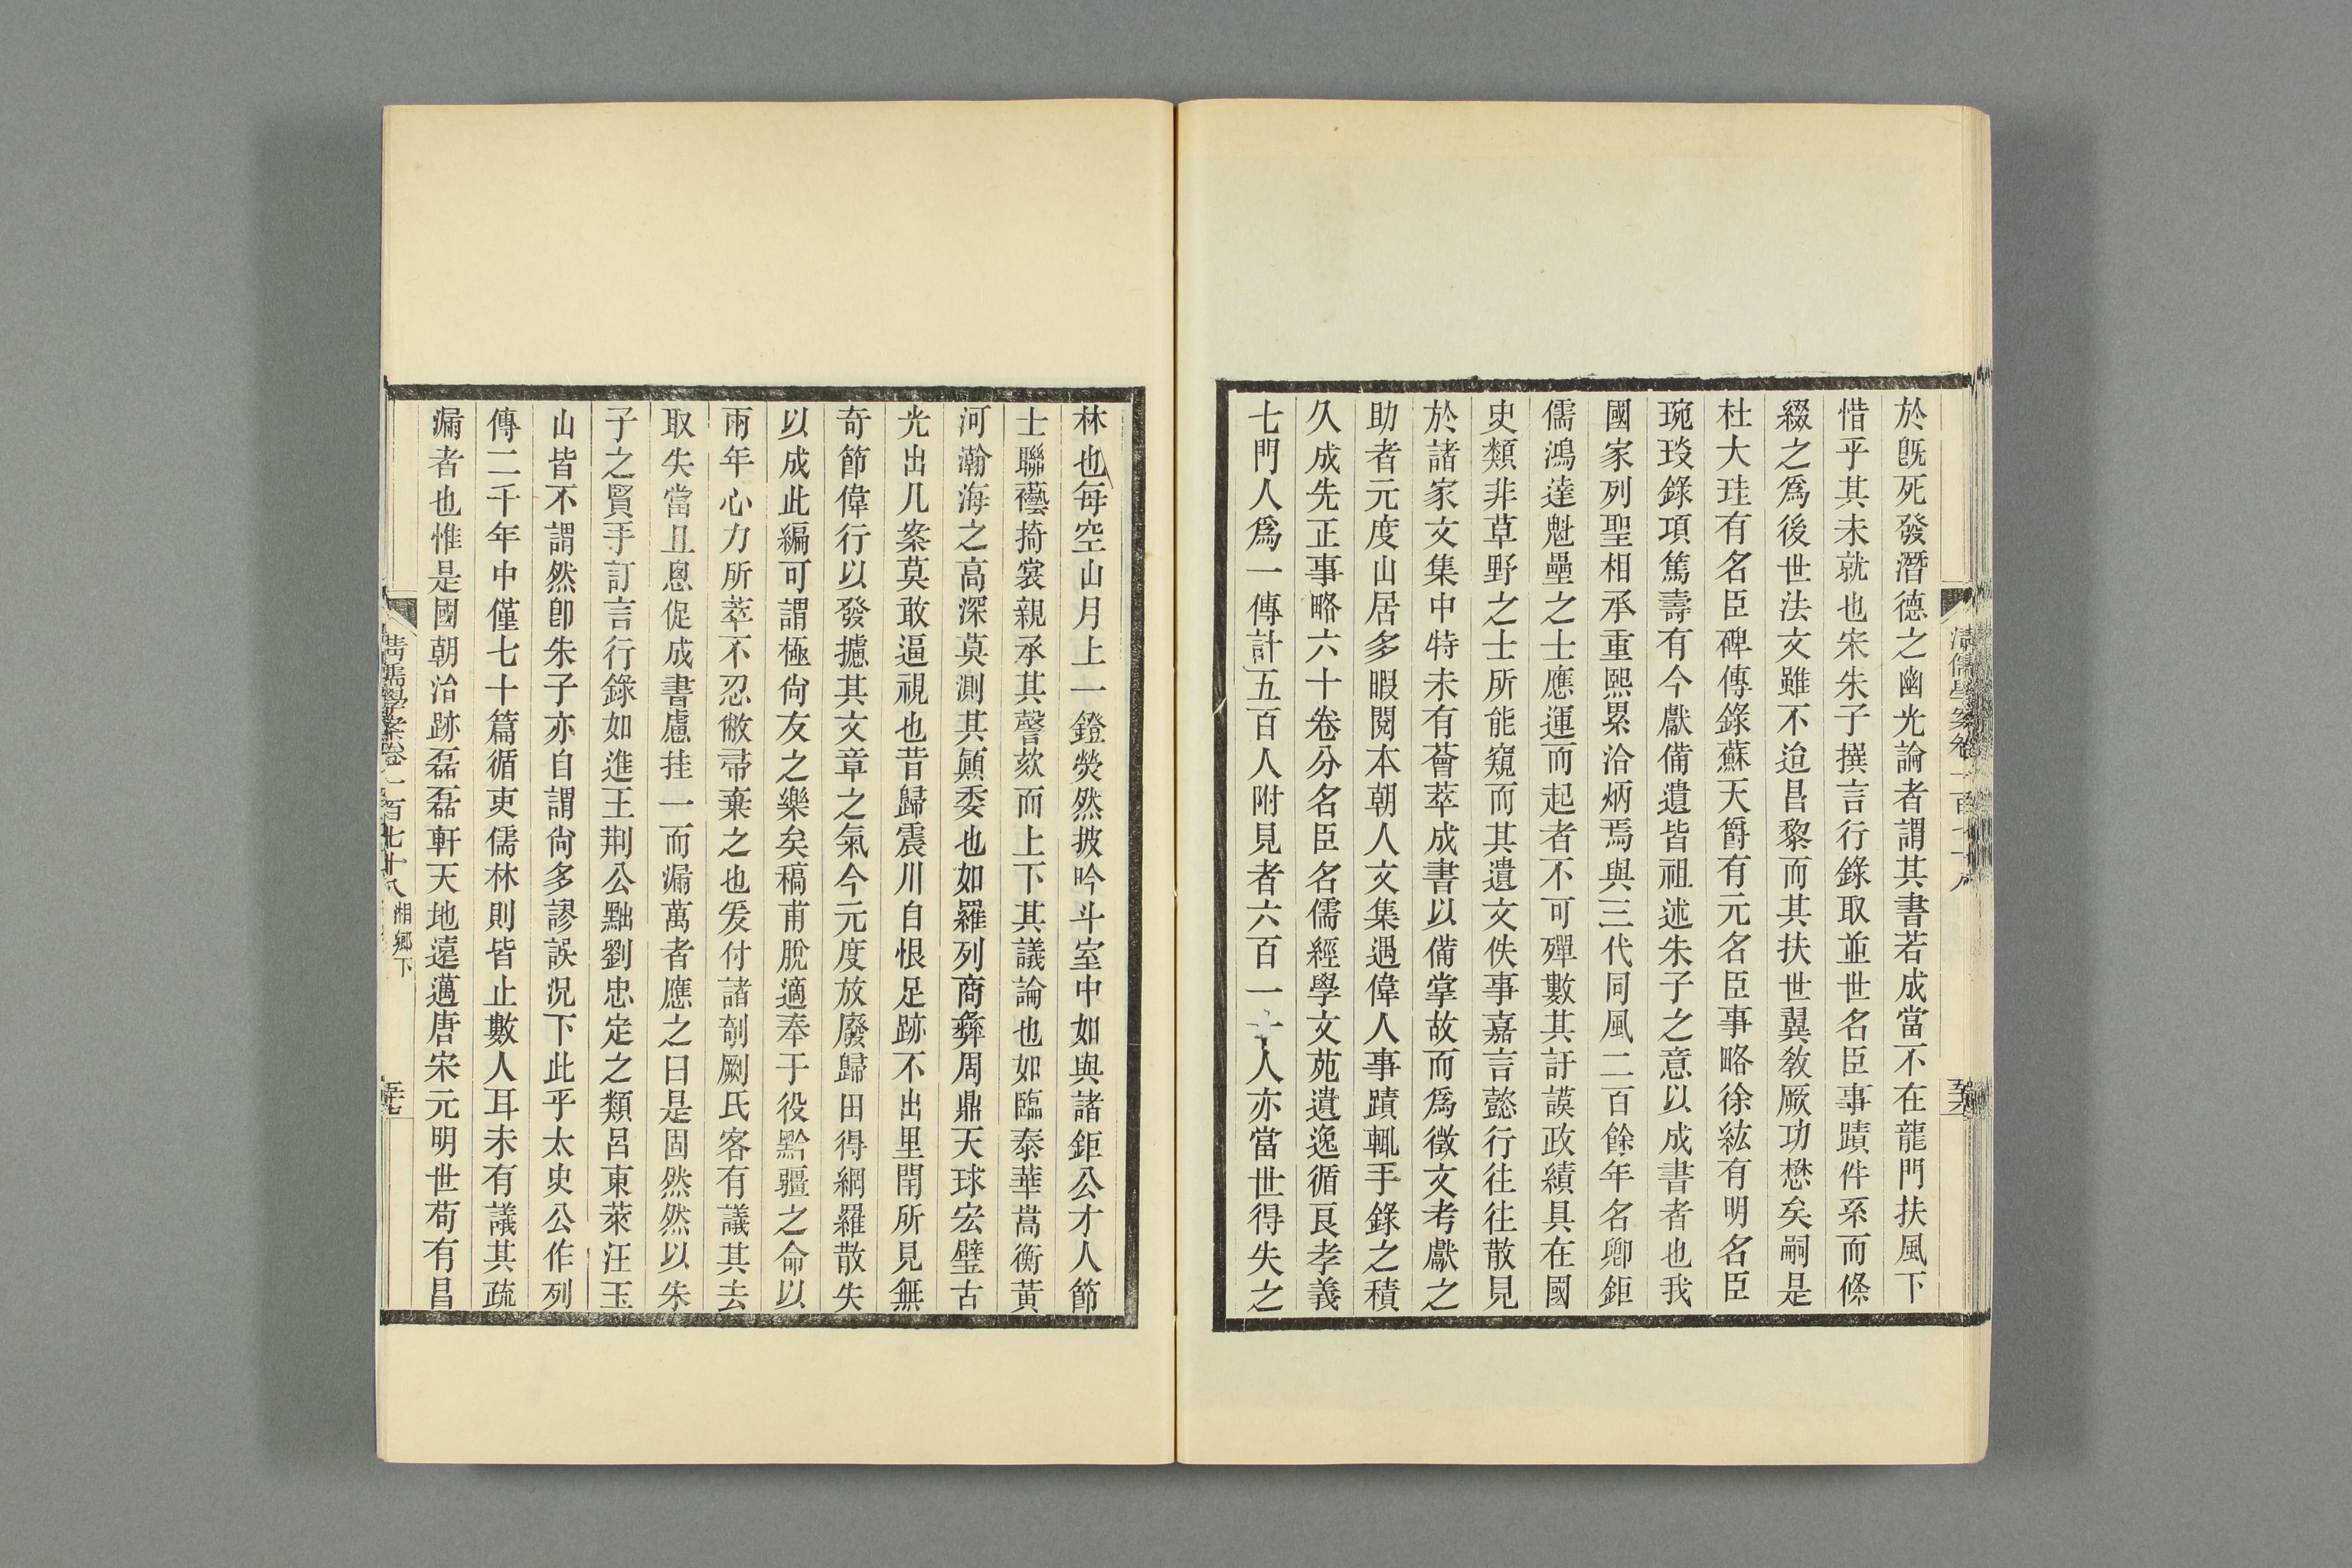 於旣死發潛德之幽光論者謂其書若成當不在龍門扶風下
惜乎其未就也宋朱子撰言行錄取並世名臣事蹟件系而條
綴之爲後世法文雖不迨昌黎而其扶世翼敎厥功懋矣嗣是
杜大珪有名臣碑傳錄蘇天爵有元名臣事略徐紘有明名臣
琬琰錄項篤壽有今獻備遺皆祖述朱子之意以成書者也我
國家列聖相承重熙累洽炳焉與三代同風二百餘年名卿鉅
儒鴻達魁壘之士應運而起者不可殫數其訏謨政績具在國
史類非草野之士所能窺而其遺文佚事嘉言懿行往往散見
於諸家文集中特未有薈萃成書以備掌故而爲徵文考獻之
助者元度山居多暇閱本朝人文集遇偉人事蹟輒手錄之積
久成先正事略六十卷分名臣名儒經學文苑遺逸循良孝義
七門人爲一傳計五百人附見者六百一十人亦當世得失之
林也每空山月上一鐙熒然披吟斗室中如與諸鉅公才人節
士聯襼掎裳親承其謦欬而上下其議論也如臨泰華嵩衡黃
河瀚海之高深莫測其顚委也如羅列商彝周鼎天球宏璧古
光出几案莫敢逼視也昔歸震川自恨足跡不出里閈所見無
奇節偉行以發攄其文章之氣今元度放廢歸田得網羅散失
以成此編可謂極尙友之樂矣稿甫脫適奉于役黔疆之命以
兩年心力所萃不忍敝帚棄之也爰付諸剞劂氏客有議其去
取失當且悤促成書慮挂一而漏萬者應之曰是固然然以朱
子之賢手訂言行錄如進王荆公黜劉忠定之類呂東萊汪玉
山皆不謂然卽朱子亦自謂尙多謬誤況下此乎太史公作列
傳二千年中僅七十篇循吏儒林則皆止數人耳未有議其疏
漏者也惟是國朝治跡磊磊軒天地遠邁唐宋元明世苟有昌
清儒學案卷一百七十八 湘鄉下